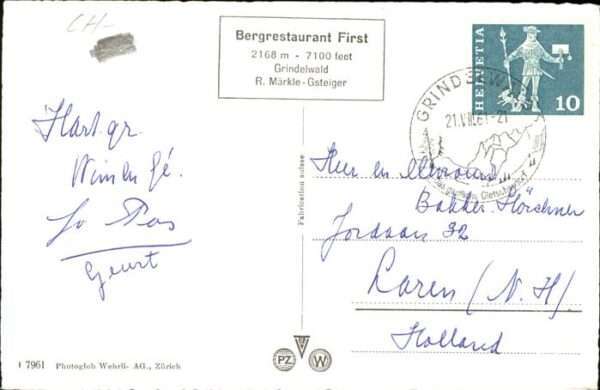 CH-
Bergrestaurant First
2168 m - 7100 feet
Grindelwald
R. Märkle-Gsteiger
HELVETIA
10
GRINDELW
21.VIII.61-21
Gletscherdorf
Hart. gr.
Wim en Gé.
Jo Pas
Geurt
Fabrication suisse
Heer en Mevrouw
Bakker-Körschner
Jordaan 32
Laren (N.H)
Holland
1 7961 Photoglob Wehrli- AG., Zürich
PZ W